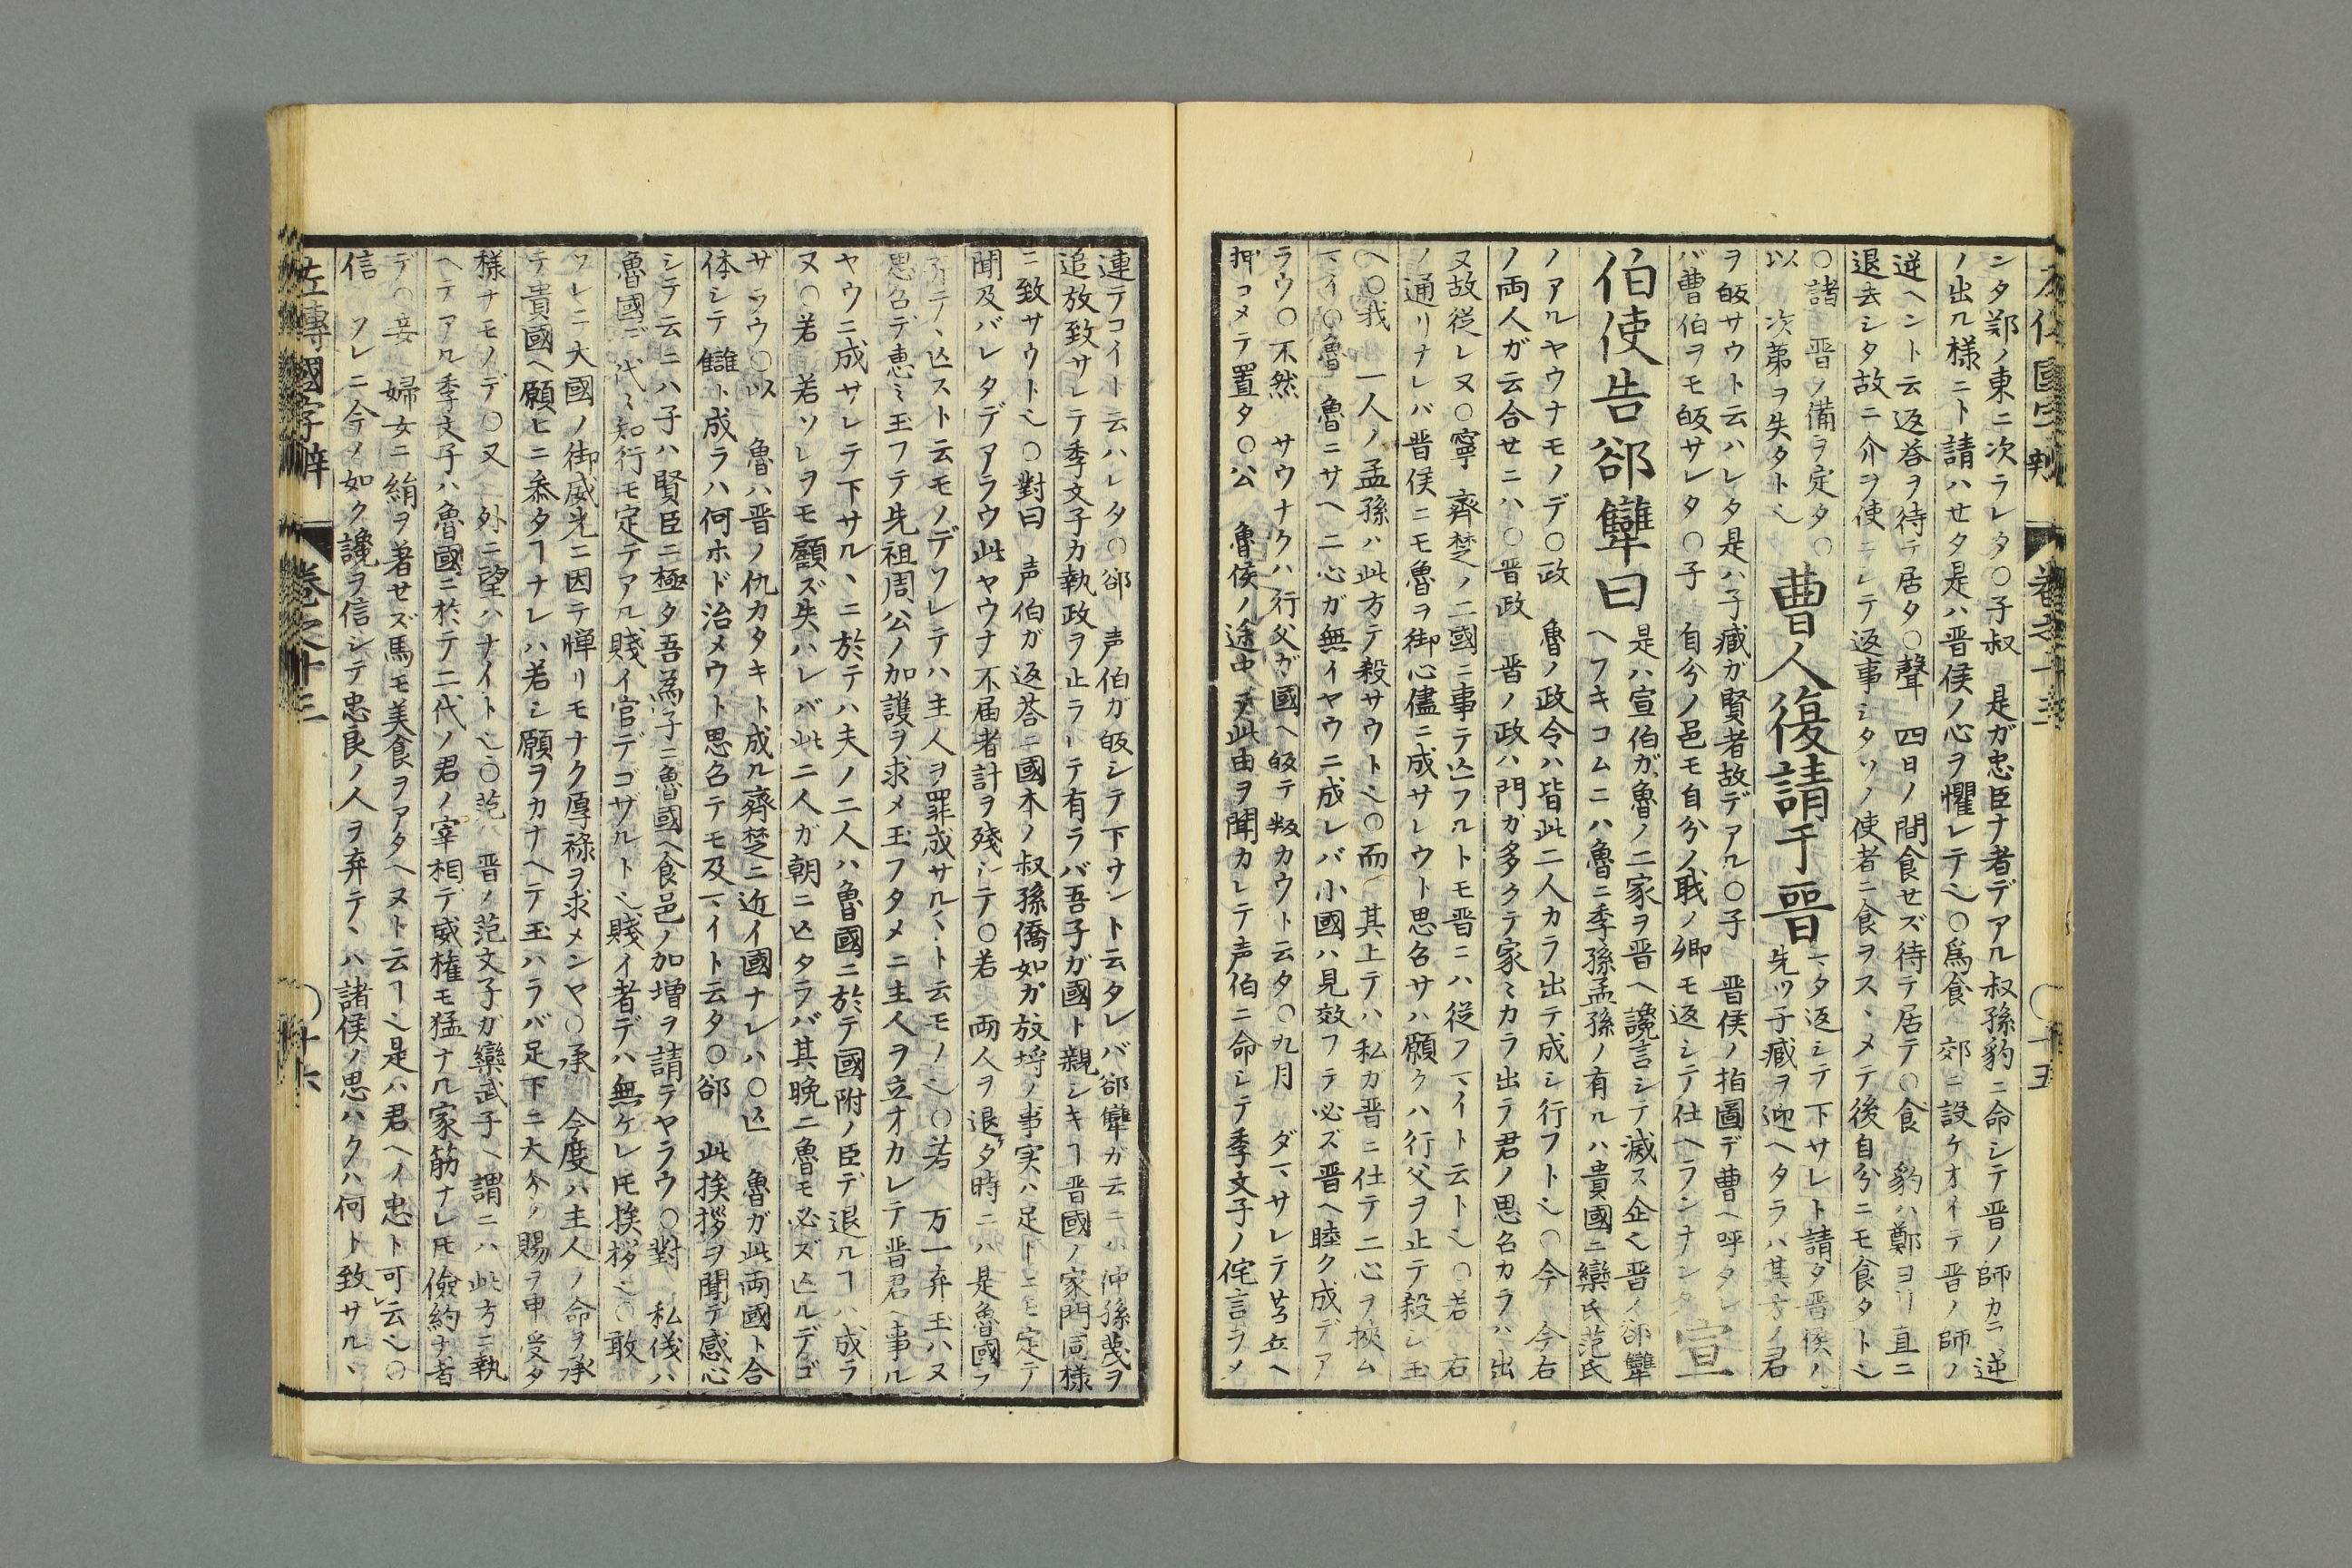 左傳國字辯 卷之十三 ○十五
シタ鄈ノ東ニ次ラレタ○子叔 是ガ忠臣ナ者デアル叔孫豹ニ命シテ晋ノ師カラ逆
ノ出ル様ニト請ハせタ是ハ晋侯ノ心ヲ懼レテ也○爲食 郊ニ設ケオイテ晋ノ師ノ
逆ヘント云返荅ヲ待テ居タ○聲 四日ノ間食せズ待テ居テ○食 豹ハ鄭ヨリ直ニ
退去シタ故ニ介ヲ使ニシテ返事シタソノ使者ニ食ヲスヽメテ後自分ニモ食タト也
○諸 晋ノ備ヲ定タ○
以 次第ヲ失タト也
曹人復請于晋
マタ返シテ下サレト請タ晋侯ノ
先ツ子臧ヲ迎ヘタラハ其方ノ君
ヲ皈サウト云ハレタ是ハ子臧ガ賢者故デアル○子 晋侯ノ指圖デ曹ヘ呼タレ
バ曹伯ヲモ皈サレタ○子 自分ノ邑モ自分ノ職ノ卿モ返シテ仕ヘランナンタ
宣
伯使告郤犨曰
是ハ宣伯ガ魯ノ二家ヲ晋ヘ讒言シテ滅ス企也晋ノ郤犨
ヘフキコムニハ魯ニ季孫孟孫ノ有ルハ貴國ニ欒氏范氏
ノアルヤウナモノデ○政 魯ノ政令ハ皆此二人カラ出テ成シ行フト也○今 今右
ノ両人ガ云合せニハ○晋政 晋ノ政ハ門ガ多クテ家ミカラ出ラ君ノ思召カラハ出
又故従レヌ○寧 齊楚ノ二國ニ事テ亾フルトモ晋ニハ従フマイト云ト也○若 右
ノ通リナレバ晋侯ニモ魯ヲ御心儘ニ成サレウト思召サハ願クハ行父ヲ止テ殺レ玉
ヘ○我 一人ノ孟孫ハ此方テ殺サウト也○而 其上テハ私カ晋ニ仕テ二心ヲ挾ム
マイ○魯 魯ニサヘ二心ガ無イヤウニ成レバ小國ハ見效フラ必ズ晋ヘ睦ク成デア
ラウ○不然 サウナクハ行父ガ國ヘ皈テ叛カウト云タ○九月 ダマサレテ苕丘ヘ
押コメテ置タ○公 魯侯ノ途中ヨテ此由ヲ聞カレテ声伯ニ命シテ季文子ノ侘言ヲメ
連テコイト云ハレタ○郤 声伯ガ皈シテ下サント云タレバ郤犨ガ云ニハ仲孫蔑ヲ
追放致サレテ季文子カ執政ヲ止ラーテ有ラバ吾子ガ國ト親シキヿ晋國ノ家門同様
ニ致サウト也○對曰 声伯ガ返荅ニ國本ノ叔孫僑如ガ放埒ノ事実ハ足トニモ定テ
聞及バレタデアラウ此ヤウナ不届者計ヲ殘シテ○若 両人ヲ退タ時ニハ是魯國ヲ
弃テヽ亾スト云モノデソレテハ主人ヲ罪成サルヽト云モノ也○若 万一弃玉ハヌ
思召デ惠ミ玉フテ先祖周公ノ加護ヲ求メ玉フタメニ主人ヲ立オカレテ晋君ヘ事ル
ヤウニ成サレテ下サルヽニ於テハ夫ノ二人ハ魯國ニ於テ國附ノ臣デ退ルヿハ成ラ
ヌ○若 若ソレヲモ顧ズ失ハレバ此二人ガ朝ニ亾タラバ其晩ニ魯モ必ズ亾ルデゴ
ザラウ○以 魯ハ晋ノ仇カタキト成ル齊楚ニ近イ國ナレハ○亾 魯ガ此両國ト合
体シテ讎ト成ラハ何ホド治メウト思召テモ及マイト云タ○郤 此挨拶ヲ聞テ感心
シテ云ニハ子ハ賢臣ニ極タ吾為子ニ魯國ヘ食邑ノ加増ヲ請テヤラウ○對 私儀ハ
魯國デ代ミ知行モ定テアル賤イ官デゴザルト也賤イ者デハ無ケレ𪜈挨拶也○敢
ソレニ大國ノ御威光ニ因テ憚リモナク厚祿ヲ求メンヤ○承 今度ハ主人ノ命ヲ承
テ貴國ヘ願ヒニ叅タヿナレハ若シ願ヲカナヘテ玉ハラバ足下ニ大分ノ賜ヲ申受タ
様ナモノデ○又 外ニ望ハナイト也○范 晋ノ范文子ガ欒武子ヘ謂ニハ此方ニ執
ヘテアル季文子ハ魯國ニ於テ二代ノ君ノ宰相デ威権モ猛ナル家筋ナレ𪜈儉約ナ者
デ○妾 婦女ニ絹ヲ著せズ馬モ美食ヲアタヘヌト云ヿ也是ハ君ヘイ忠ト可云也○
信 ソレニ今ノ如ク讒ヲ信シテ忠良ノ人ヲ弃テヽハ諸侯ノ思ハクハ何ト致サルヽ
左傳國字辯 卷之十三 ○十六